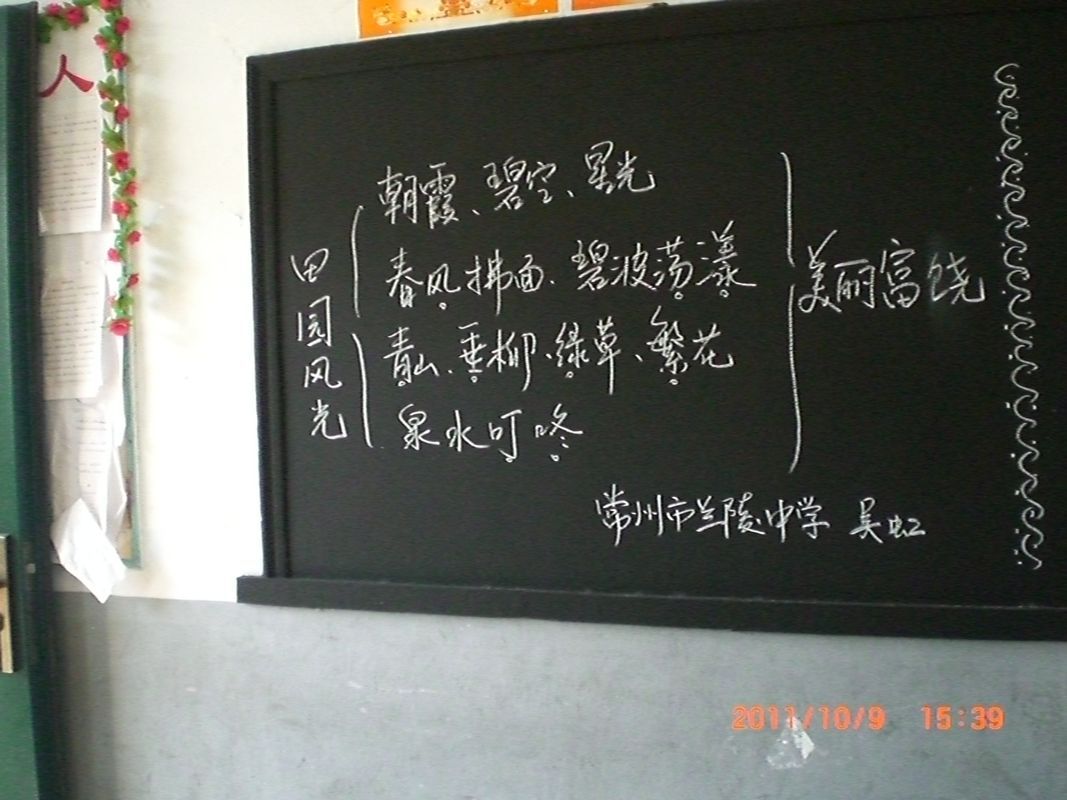 人
田园风光
朝霞、碧空、星光
春风拂面、碧波荡漾
青山、垂柳、绿草、繁花
泉水叮咚
美丽富饶
常州市兰陵中学 吴虹
2011/10/9 15:39